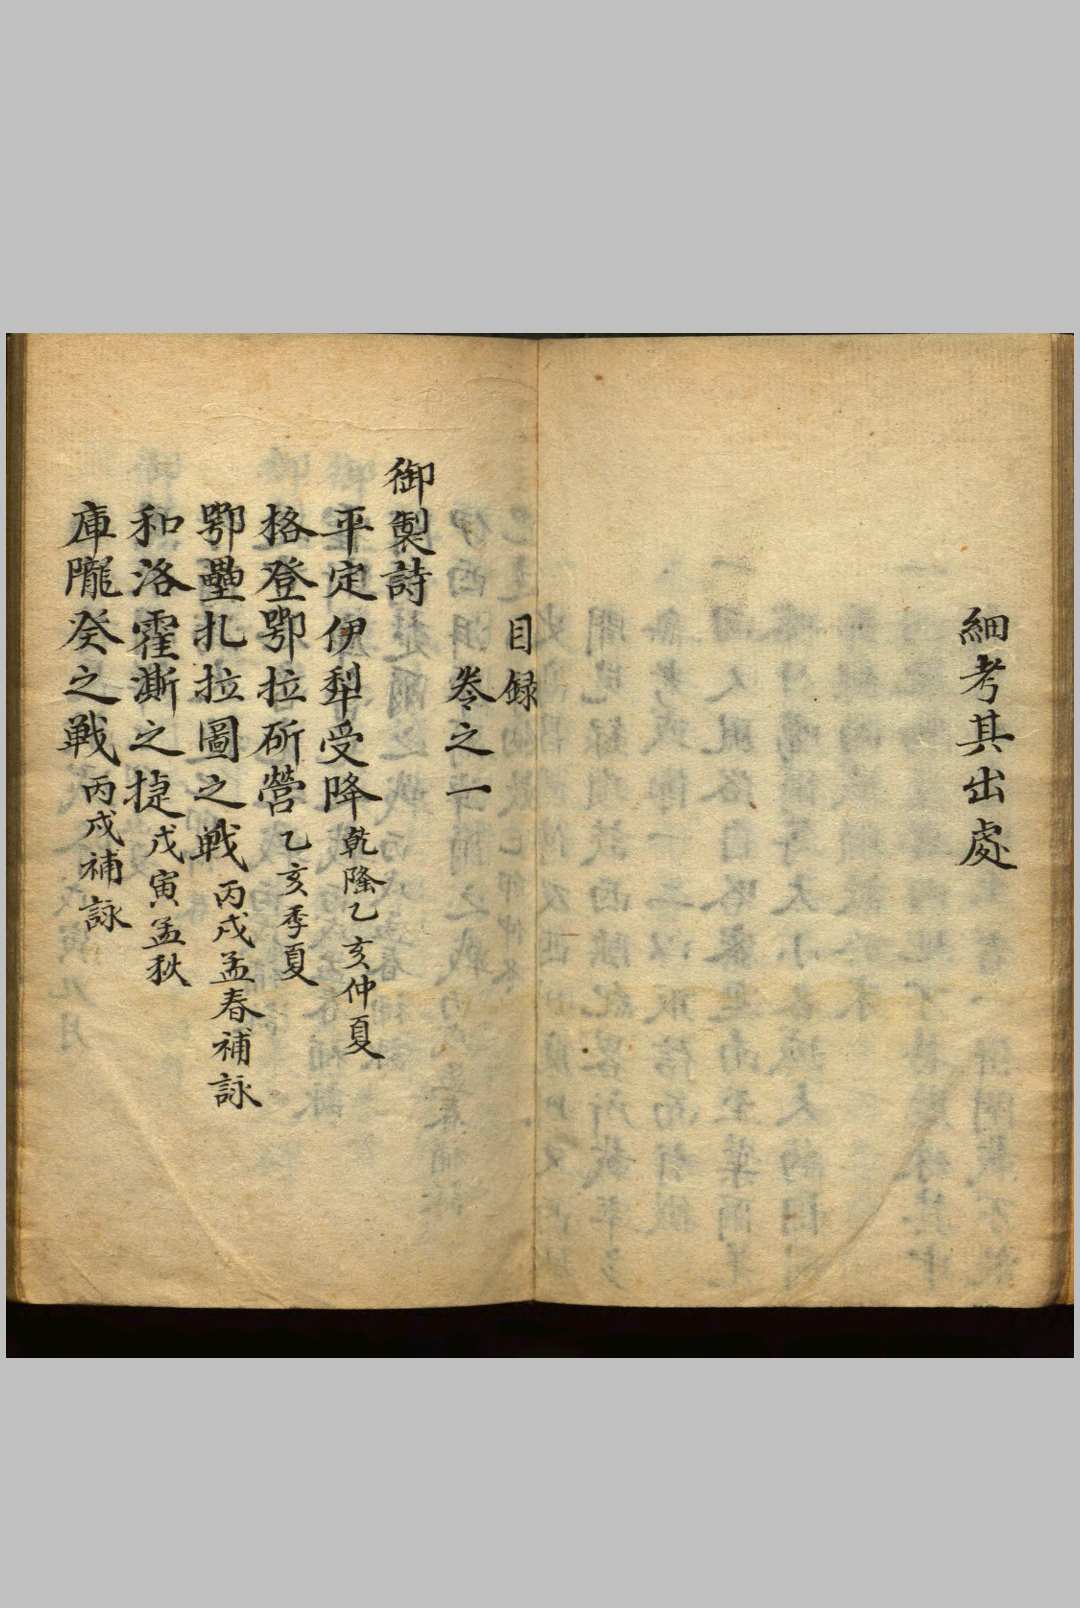 細考其出處
目録
卷之一
御製詩
平定伊犁受降乾隆乙亥仲夏
格登鄂拉斫營乙亥季夏
鄂壘扎拉圖之戰丙戌孟春補詠
和洛霍澌之捷戊寅孟秋
庫隴癸之戰丙戌補詠